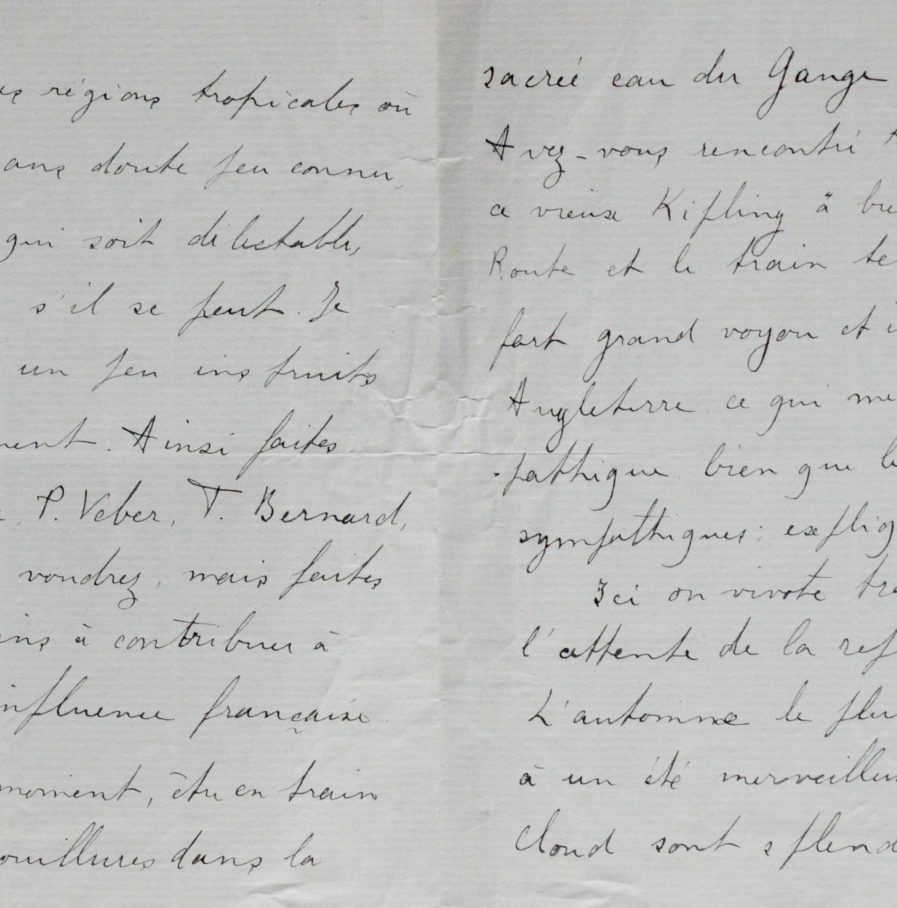 régions tropicales où
doute peu connu,
qui soit délectable,
s'il se peut. Je
un peu instruits
Ainsi faites
P. Veber, T. Bernard,
voudrez, mais faites
à contribuer à
influence française
moment, être en train
dans la
sacrée eau du Gange
Avez-vous rencontré
ce vieux Kipling à
Route et le train
fort grand voyou et
Angleterre ce qui me
-pathique bien que
sympathiques; expliq
Ici on vivote
l'attente de la
L'automne le
à un été merveilleu
Cloud sont splend